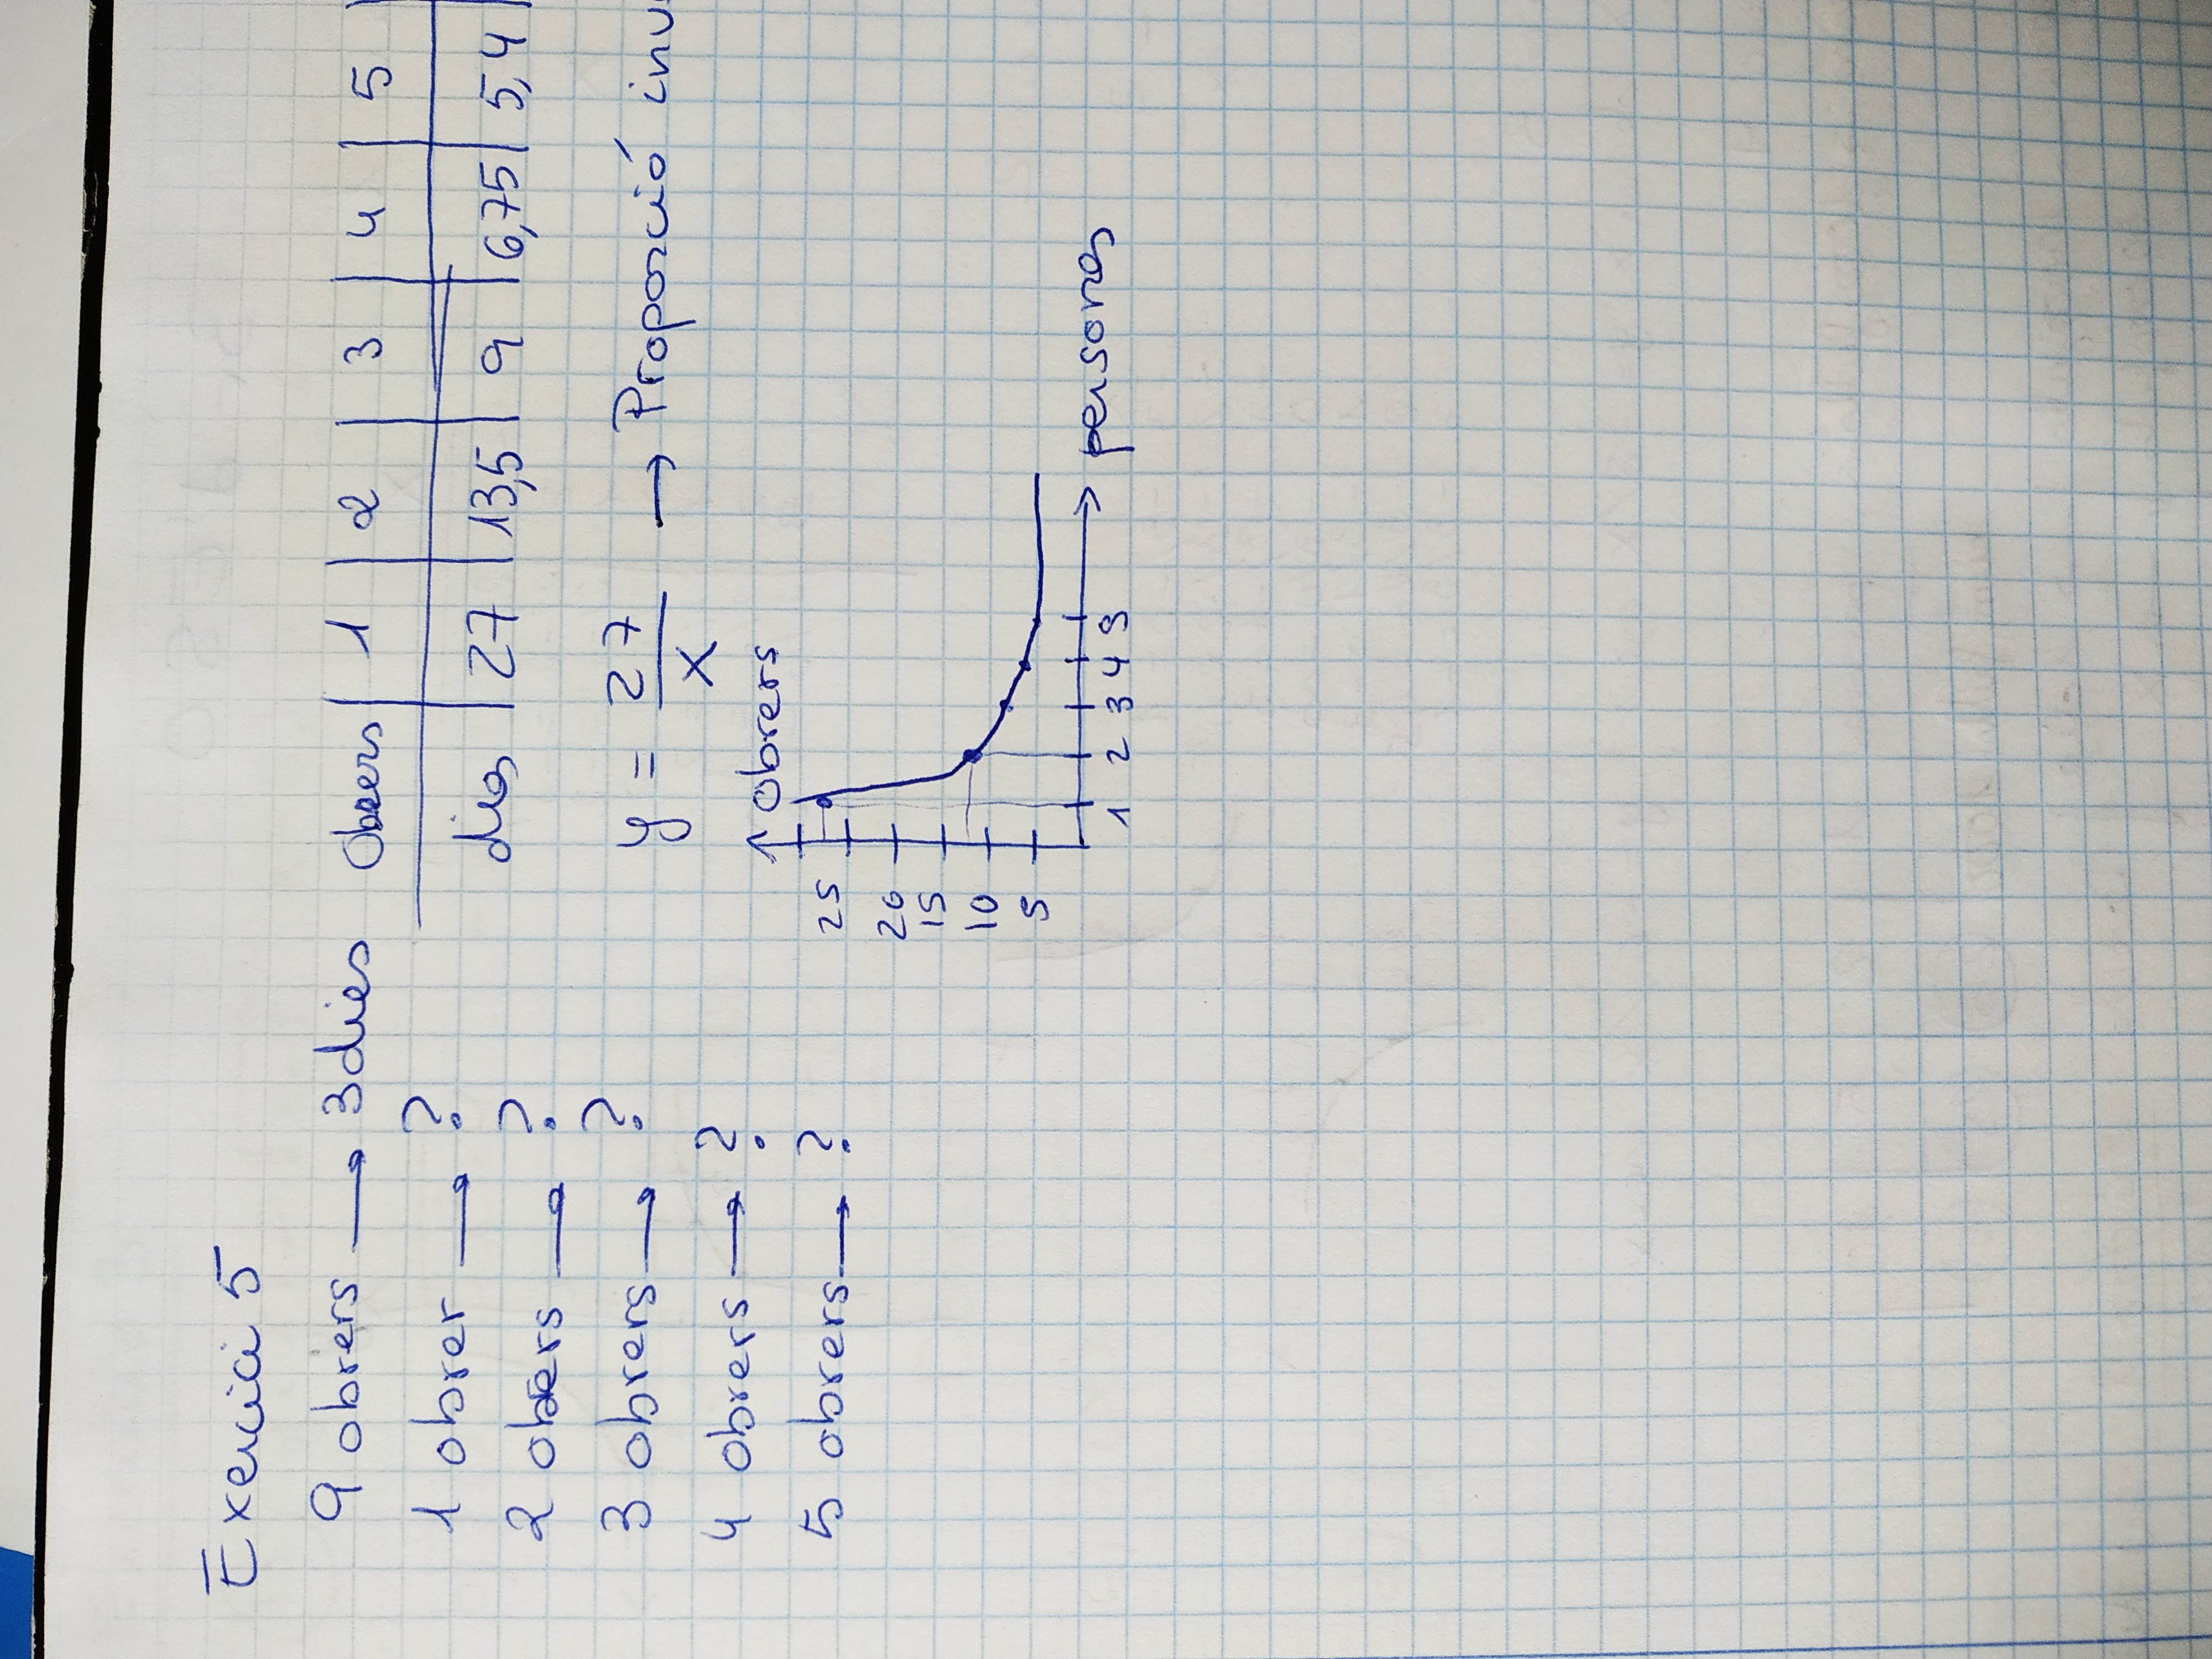 Exercici 5
9 obrers → 3 dies
1 obrer → ?
2 obrers → ?
3 obrers → ?
4 obrers → ?
5 obrers → ?
Obrers | 1 | 2 | 3 | 4 | 5 |
dies | 27 | 13,5 | 9 | 6,75 | 5,4
y = 27/x → Proporció inve
obrers
25
20
15
10
5
1 2 3 4 5
persones